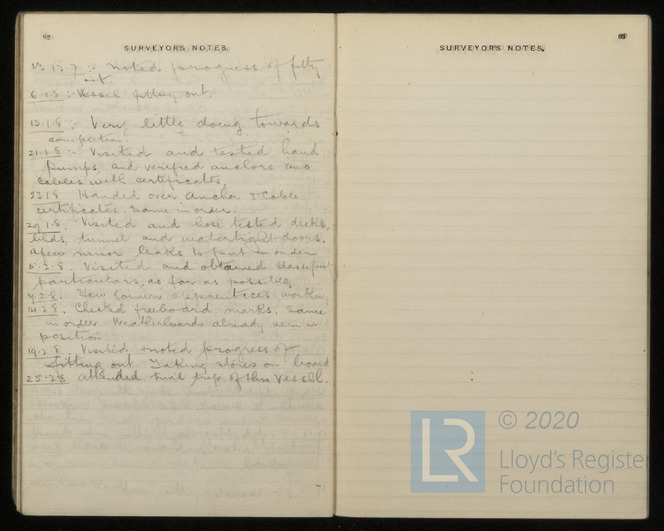 62
SURVEYOR'S NOTES.
13.12.7 :- noted progress of fitting
out
6.1.8 :- Vessel fitting out.
13.1.8 :- Very little doing towards
completion.
21.1.8 :- Visited and tested hand
pumps, and verified anchors and
cables with certificates.
23.1.8 Handed over Anchor & Cable
certificates. Same in order.
29.1.8. Visited and hose tested decks,
tunnel and watertight doors.
A few minor leaks to put in order
5.2.8. Visited and obtained
particulars, as far as possible,
7.2.8. Few joiners & apprentices working
14.2.8. Checked freeboard marks. Same
in order Weatherboards already in
position.
19.2.8. Visited & noted progress of
fitting out. Taking stores on board
25.2.8 attended trial trip of this Vessel.
63
SURVEYOR'S NOTES.
LR
© 2020
Lloyd's Register
Foundation